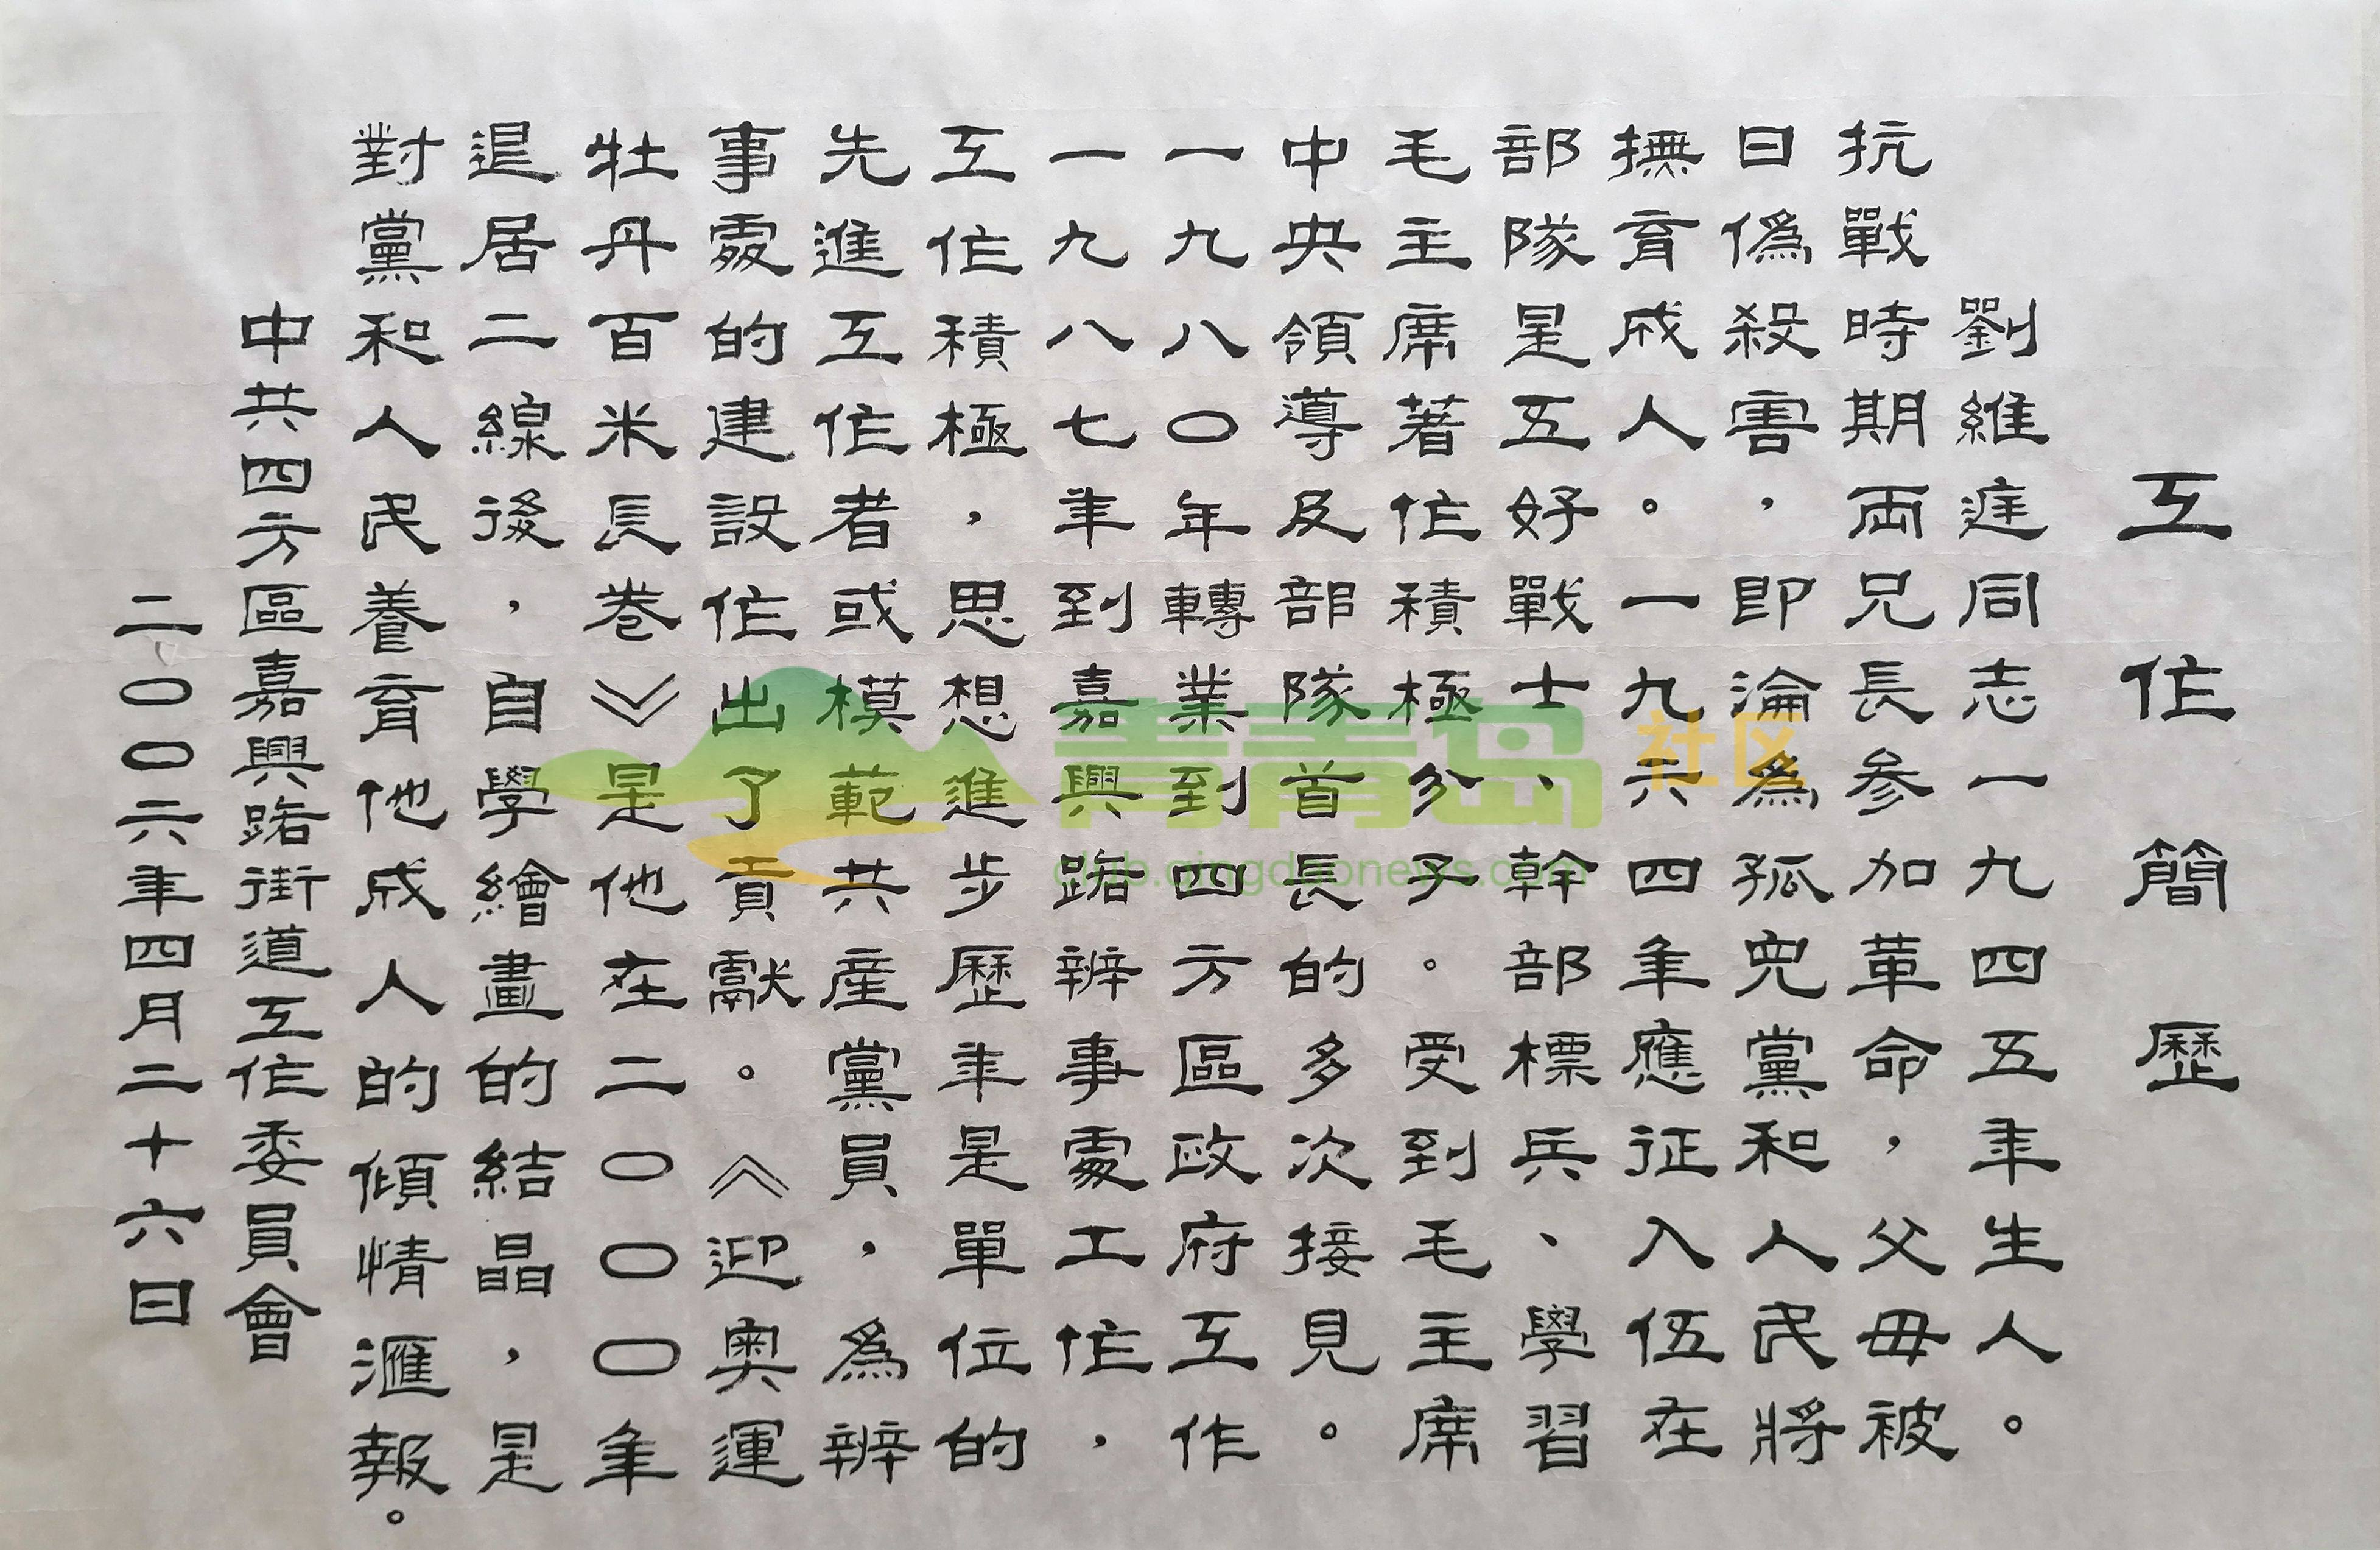 工作簡歷
劉維進同志一九四五年生人。
抗戰時期両兄長參加革命，父毋被
日偽殺害，即淪為孤兒黨和人民將
撫育成人。一九六四年應征入伍在
部隊是五好戰士、幹部標兵、學習
毛主席著作積極分子。受到毛主席
中央領導及部隊首長的多次接見。
一九八〇年轉業到四方區政府工作
一九八七年到嘉興路辦事處工作，
工作積極，思想進步歷年是單位的
先進工作者或模範共産黨員，為辦
事處的建設作出了貢獻。《迎奧運
牡丹百米長卷》是他在二〇〇〇年
退居二線後，自學繪畫的結晶，是
對黨和人民養育他成人的傾情滙報。
中共四方區嘉興路街道工作委員會
二〇〇六年四月二十六日
青青岛社区
club.qingdaonews.com